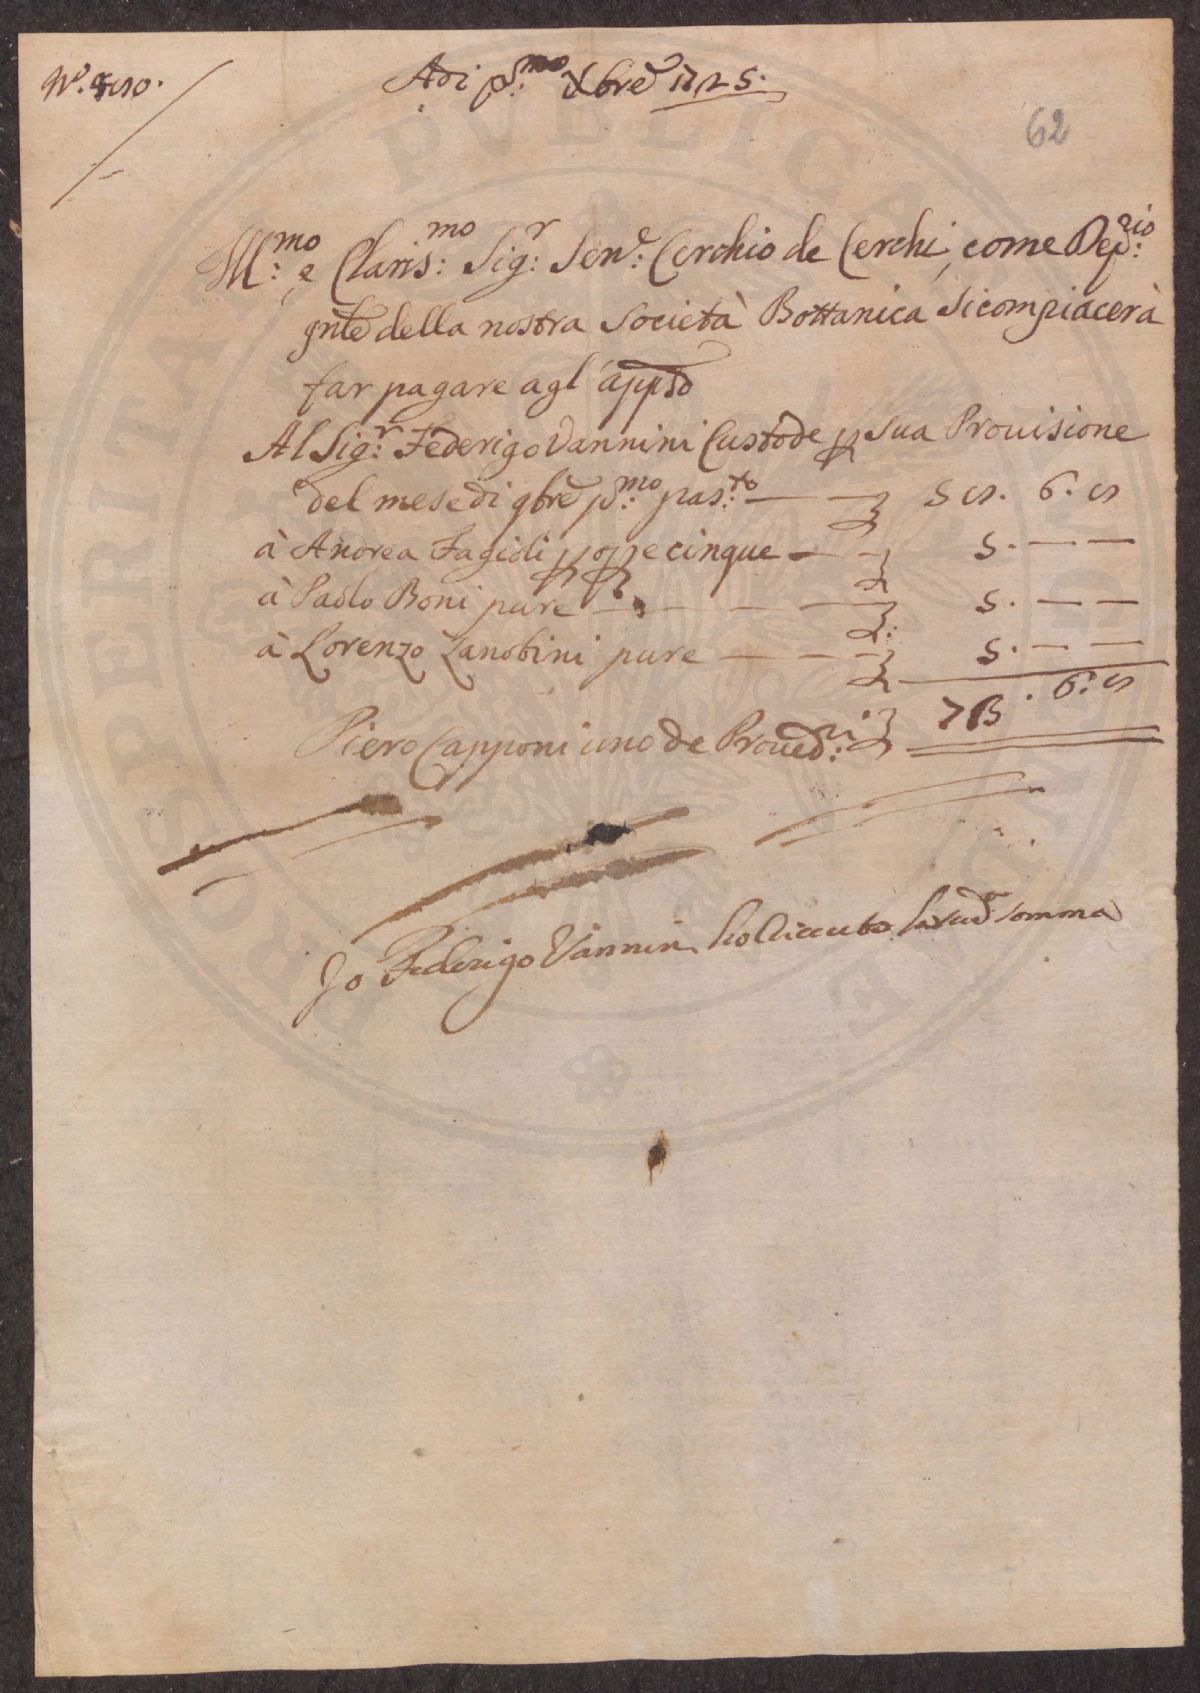 Adi p:mo Xbre 1725.
62
Ill:mo, e Claris:mo Sig:r Sen:e Cerchio de Cerchi, come Dep:rio
gnle della nostra Società Bottanica si compiacerà
far pagare agl'appsd
Al Sig:r Federigo Vannini Custode p sua Prouisione
del mese di 9bre p:mo pas:to
à Andrea Fagioli p ope cinque 5. — —
à Paolo Boni pure 5. — —
à Lorenzo Zanobini pure 5. — —
Piero Capponi uno de Proued:ri
Io Federigo Vannini ho riceuto la sudª somma